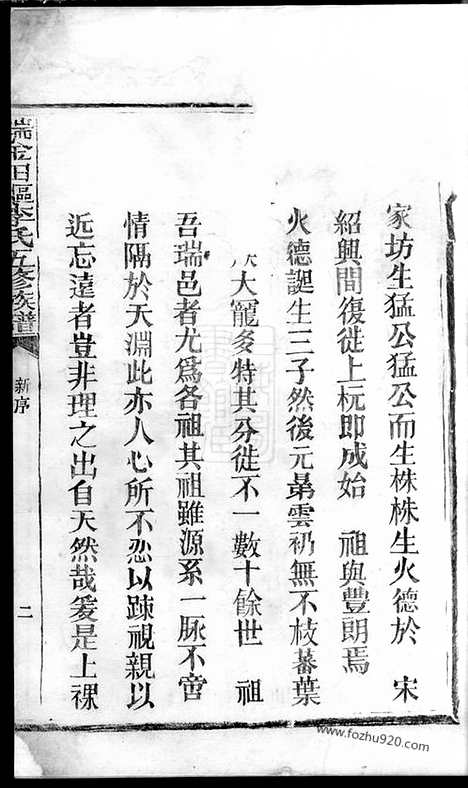 家坊生猛公猛公而生株株生火德於 宋
紹興間復徙上杭即成始 祖與豐朗焉
火德誕生三子然後元昴雲礽無不枝蕃葉
大寵多特其分徙不一數十餘世 祖
吾瑞邑者尤爲各祖其祖雖源系一脉不啻
情隔於天淵此亦人心所不忍以踈視親以
近忘遠者豈非理之出自天然哉爰是上祼
瑞金田 李氏五修族譜
新序
二
www.fozhu920.com